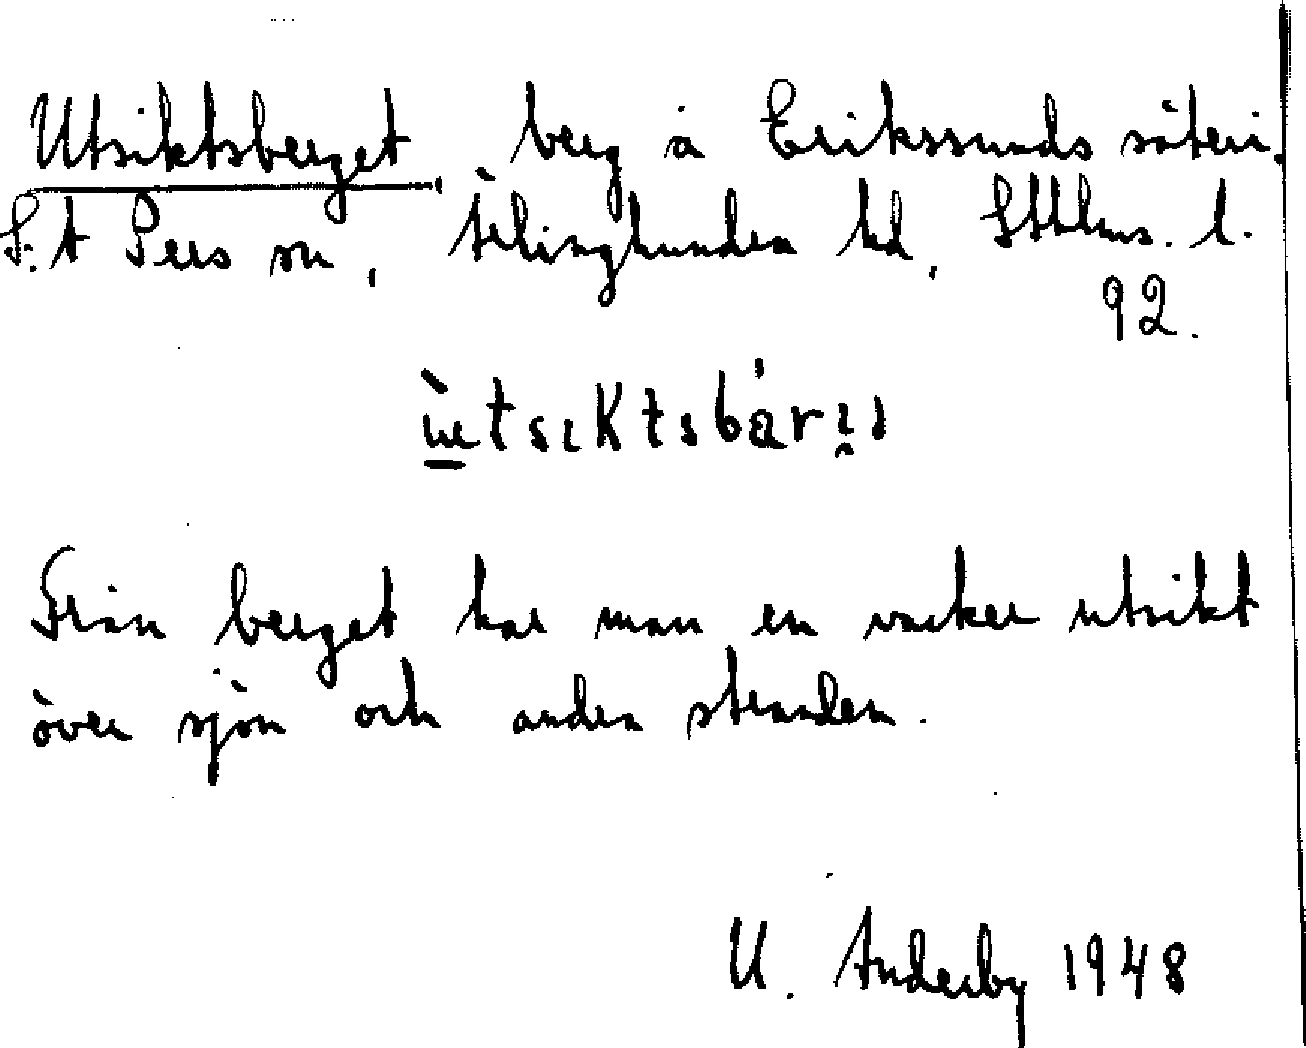 Utsiktsberget berg å Erikssunds säteri,
S:t Pers sn, Ärlinghundra hd, Sthlms. l.
92.
Från berget har man en vacker utsikt
över sjön och andra stranden.
U. Anderby 1948